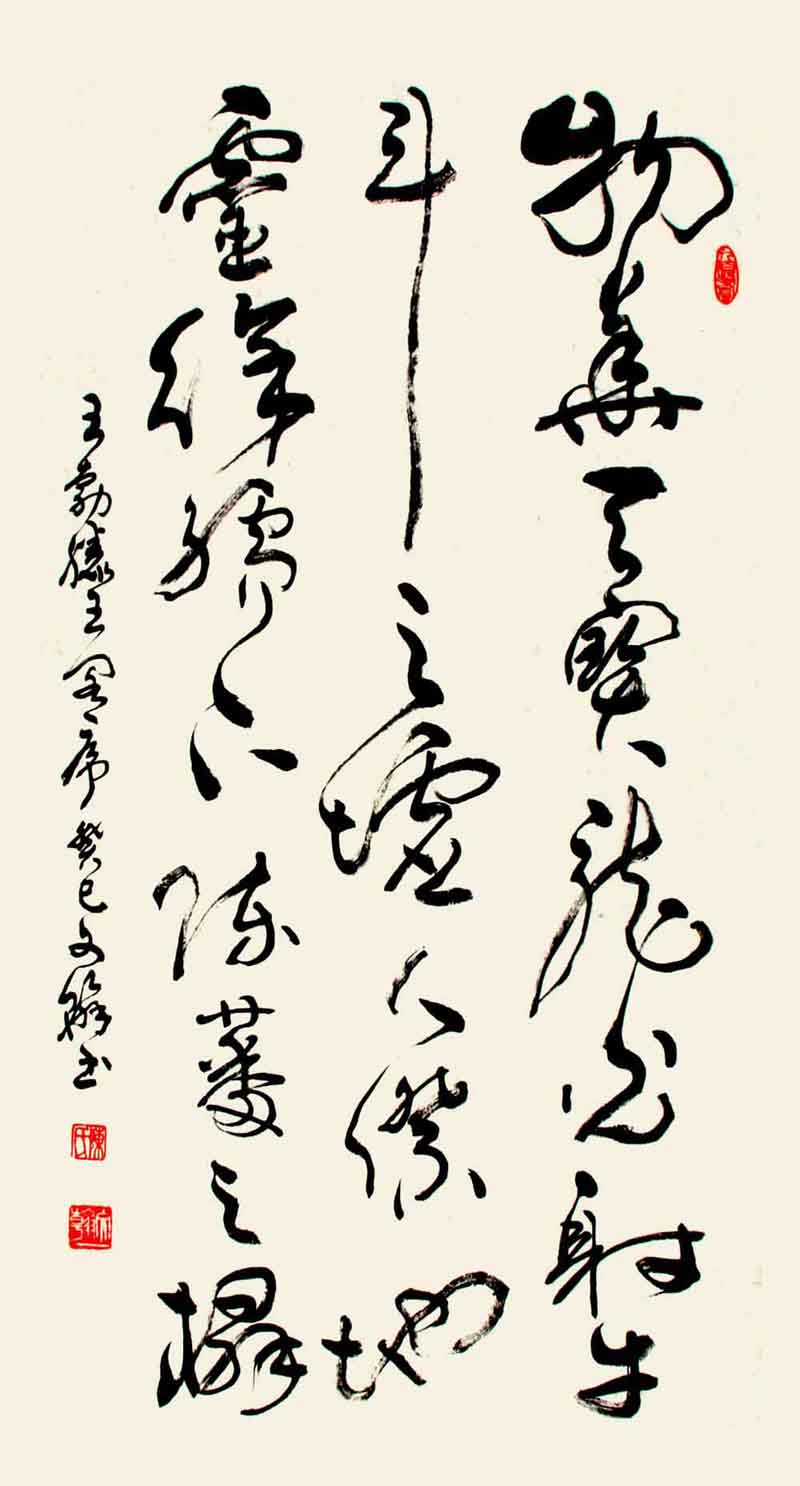 物華天寶龍光射牛
斗之墟人傑地
靈徐孺下陳蕃之榻
王勃滕王閣序癸巳文翰书
陳氏